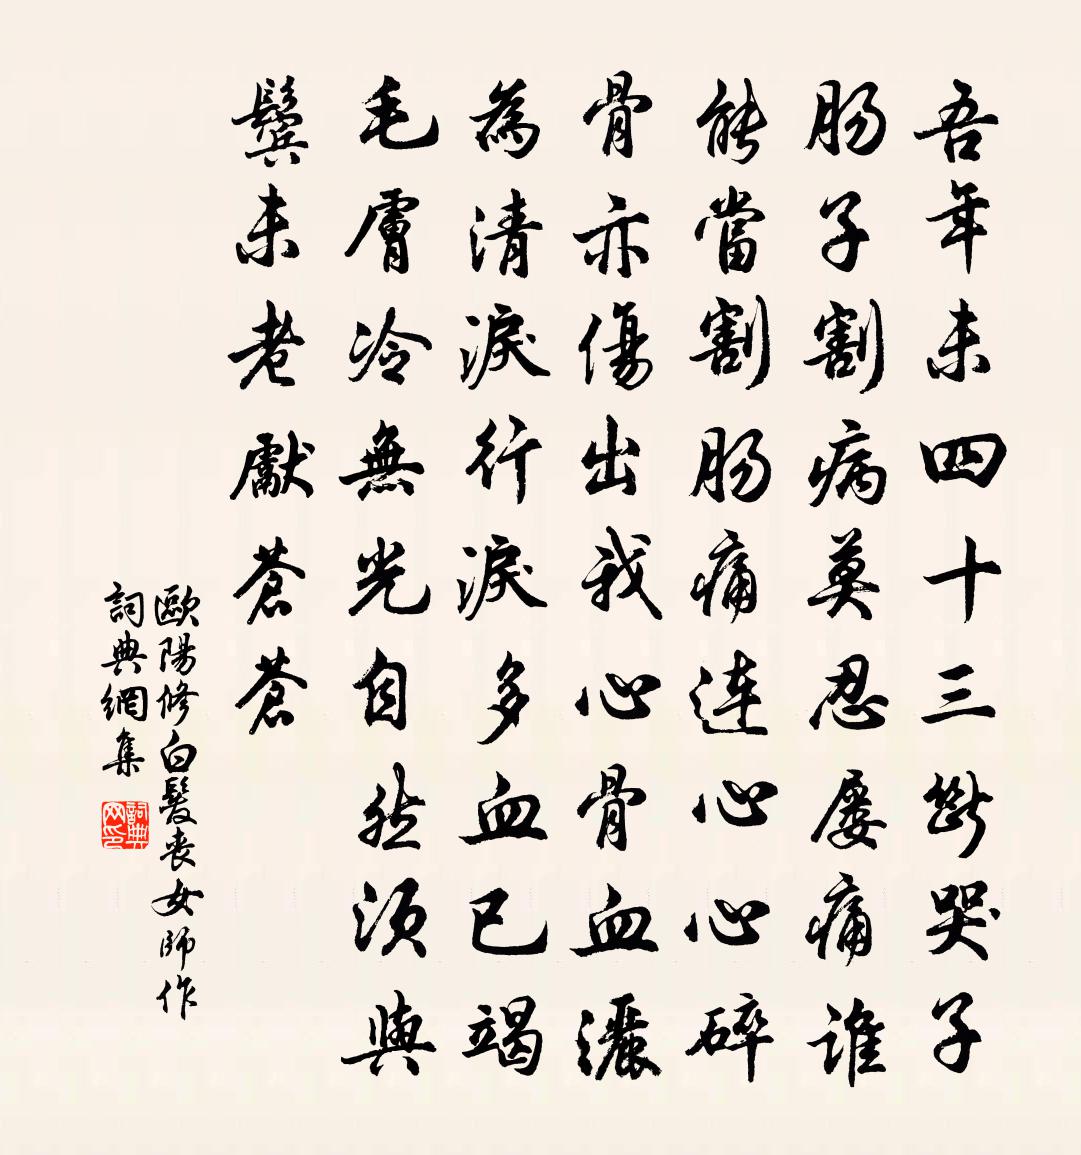 吾年未四十三斷哭子
腸子割病莫忍屢痛誰
能當割腸痛連心心碎
骨亦傷出我心骨血灑
為清淚行淚多血已竭
毛膚冷無光自然須與
鬢未老獻蒼蒼
歐陽修白髮喪女師作
詞典網集
詞典网印